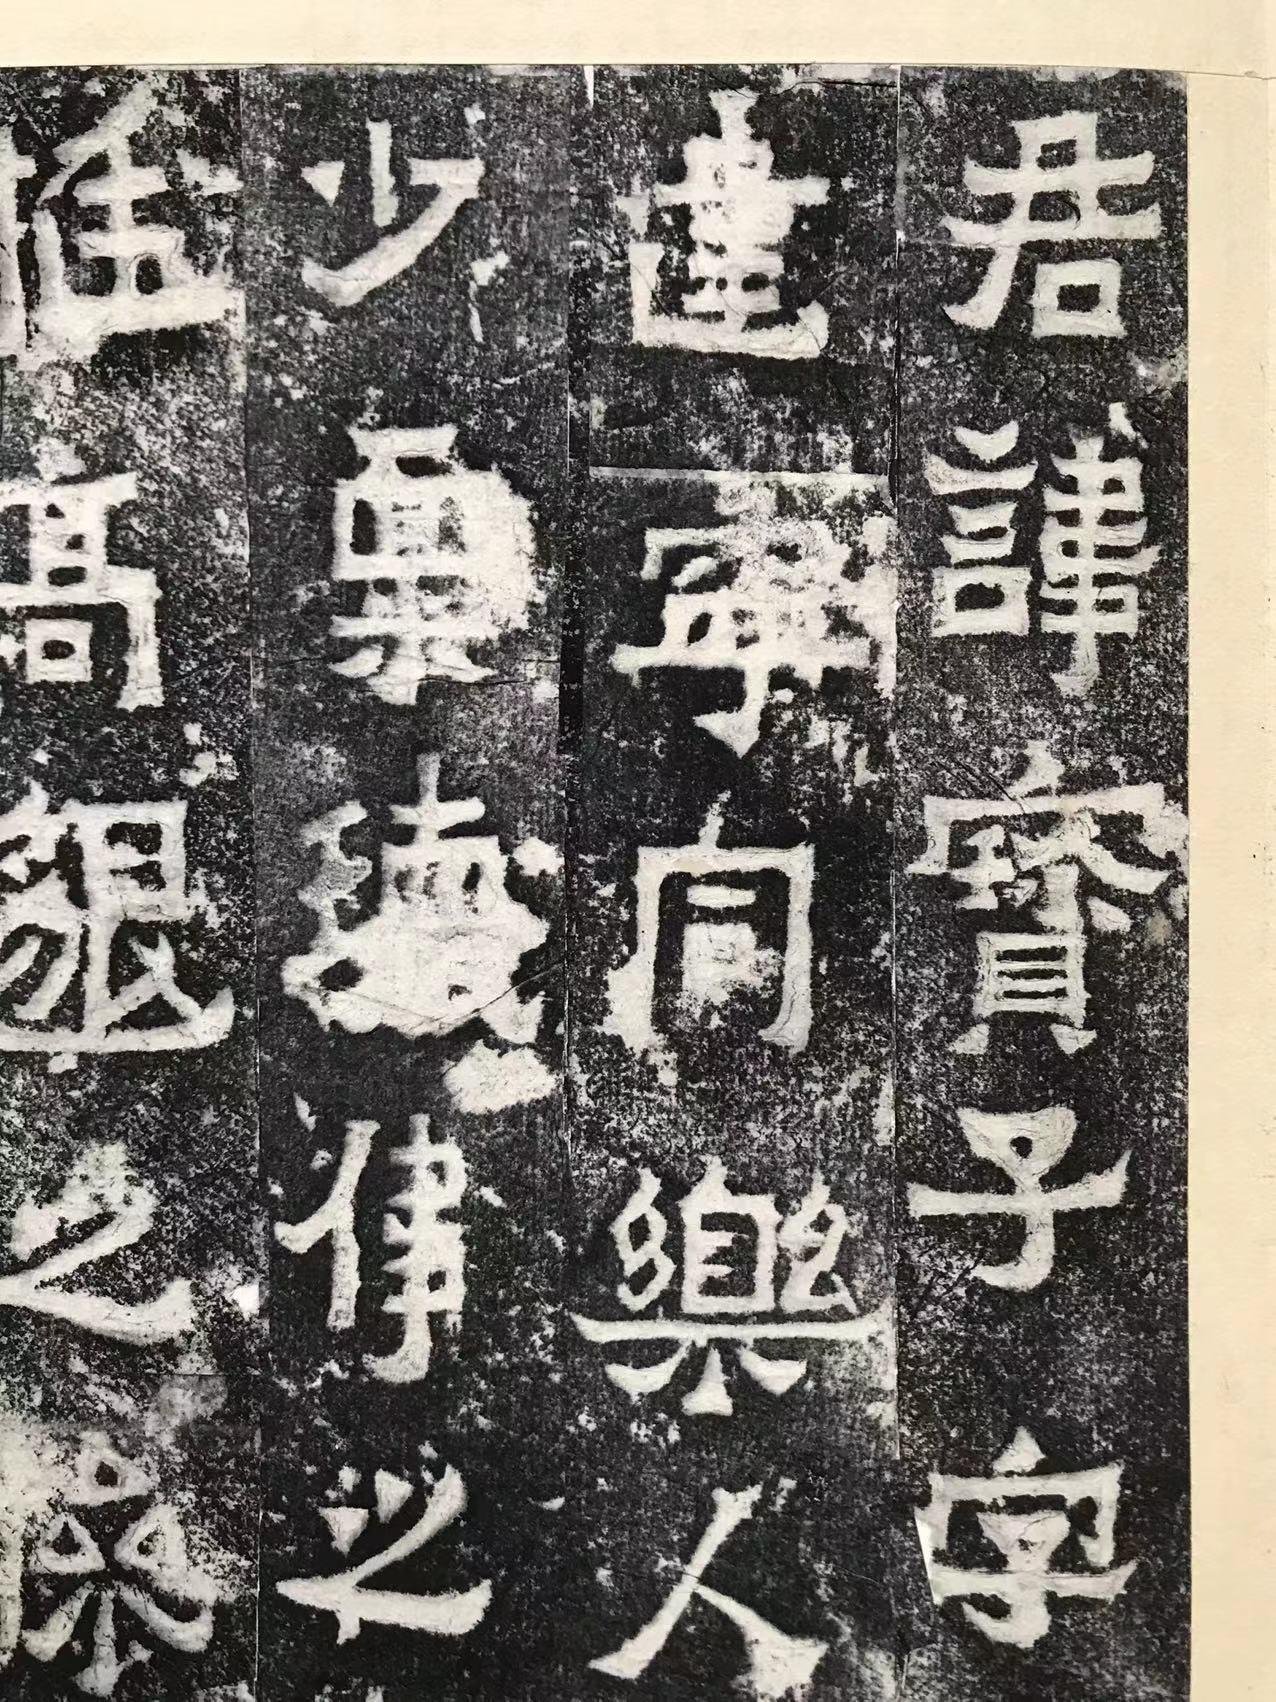 君諱寶子字
建寧同樂人
少稟瓌偉之
雄高朗之絛